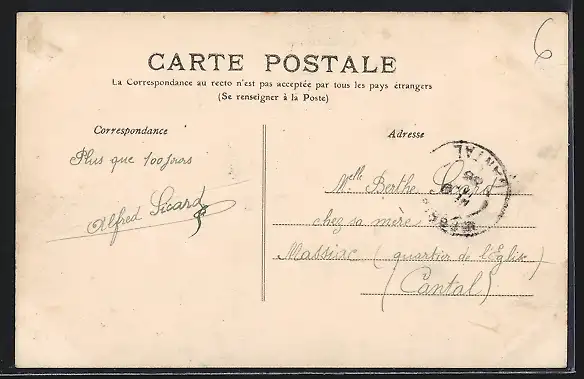 6
CARTE POSTALE
La Correspondance au recto n'est pas acceptée par tous les pays étrangers
(Se renseigner à la Poste)
Correspondance
Adresse
Plus que 100 jours
Alfred Sicard
Melle Berthe
chez sa mère
Massiac (quartier de l'Eglise)
(Cantal)
CANTAL